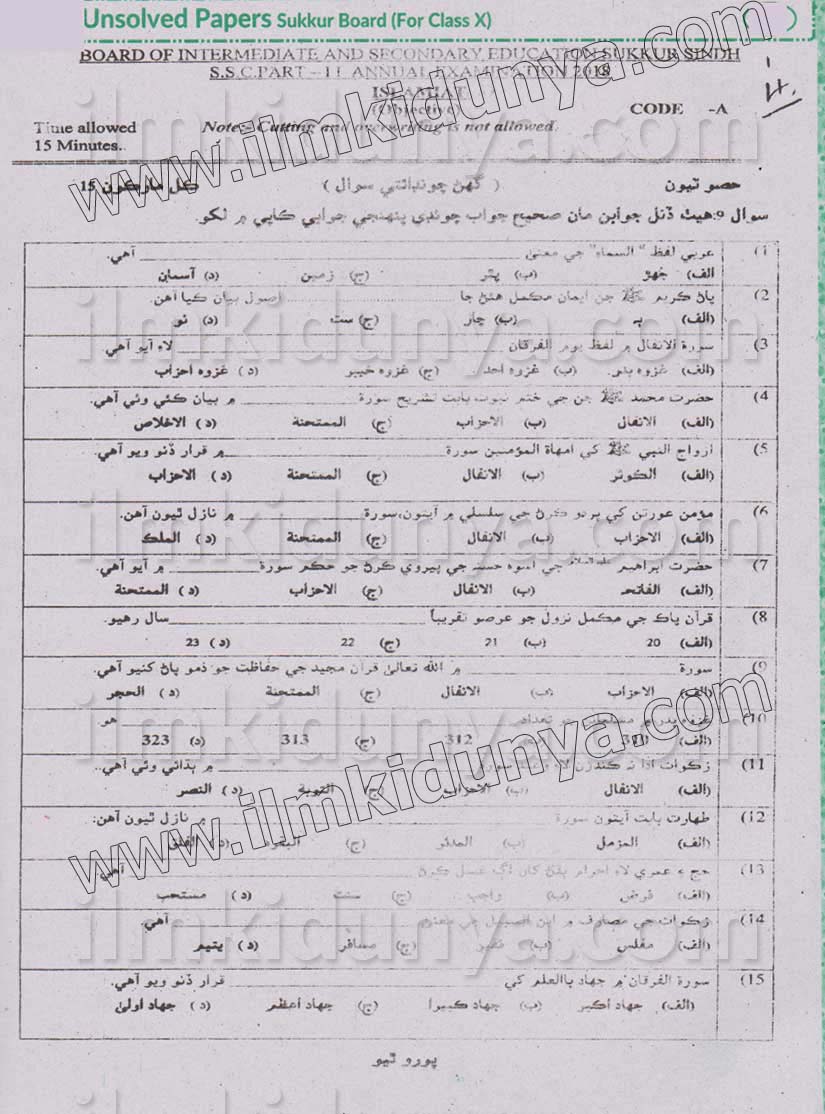 Unsolved Papers Sukkur Board (For Class X)
BOARD OF INTERMEDIATE AND SECONDARY EDUCATION SUKKUR SINDH
S.S.C.PART – 11 ANNUAL EXAMINATION 2018
ISLAMIAT
(Objective)
CODE -A
Time allowed
15 Minutes..
Note:- Cutting and overwriting is not allowed.
حصو ٽيون ( گهڻ چونڊائتي سوال ) ڪل مارڪون 15
سوال 9: هيٺ ڏنل جوابن مان صحيح جواب چونڊي پنهنجي جوابي ڪاپي ۾ لکو.
1) عربي لفظ "السماء" جي معنيٰ ______ آهي.
(الف) جهڙ (ب) پٿر (ج) زمين (د) آسمان
2) پاڻ ڪريم ﷺ جن ايمان مڪمل هئڻ جا ______ اصول بيان ڪيا آهن.
(الف) ٻه (ب) چار (ج) ست (د) نو
3) سورة الانفال ۾ لفظ يوم الفرقان ______ لاءِ آيو آهي
(الف) غزوه بدر (ب) غزوه احد (ج) غزوه خيبر (د) غزوه احزاب
4) حضرت محمد ﷺ جن جي ختم نبوت بابت تشريح سورة ______ ۾ بيان ڪئي وئي آهي.
(الف) الانفال (ب) الاحزاب (ج) الممتحنة (د) الاخلاص
5) ازواج النبي ﷺ کي امهاة المؤمنين سورة ______ ۾ قرار ڏنو ويو آهي.
(الف) الڪوثر (ب) الانفال (ج) الممتحنة (د) الاحزاب
6) مؤمن عورتن کي پردو ڪرڻ جي سلسلي ۾ آيتون،سورة ______ ۾ نازل ٿيون آهن.
(الف) الاحزاب (ب) الانفال (ج) الممتحنة (د) الملڪ
7) حضرت ابراهيم عليه السلام جي اسوه حسنه جي پيروي ڪرڻ جو حڪم سورة ______ ۾ آيو آهي.
(الف) الفاتحہ (ب) الانفال (ج) الاحزاب (د) الممتحنة
8) قرآن پاڪ جي مڪمل نزول جو عرصو تقريباً ______ سال رهيو.
(الف) 20 (ب) 21 (ج) 22 (د) 23
9) سورة ______ ۾ الله تعاليٰ قرآن مجيد جي حفاظت جو ذمو پاڻ کنيو آهي.
(الف) الاحزاب (ب) الانفال (ج) الممتحنة (د) الحجر
10) غزوه بدر ۾ مسلمانن جو تعداد ______ هو.
(الف) 311 (ب) 312 (ج) 313 (د) 323
11) زڪوات ادا نه ڪندڙن لاءِ سورة ______ ۾ ٻڌائي وئي آهي..
(الف) الانفال (ب) الاحزاب (ج) التوبة (د) النصر
12) طهارت بابت آيتون سورة ______ ۾ نازل ٿيون آهن:
(الف) المزمل (ب) المدثر (ج) البقره (د) الفلق
13) حج ۽ عمري لاءِ احرام ٻڌڻ کان اڳ غسل ڪرڻ ______ آهي.
(الف) فرض (ب) واجب (ج) سنت (د) مستحب
14) زڪوات جي مصارف ۾ ابن السبيل جي معنيٰ ______ آهي.
(الف) مفلس (ب) فقير (ج) مسافر (د) يتيم
15) سورة الفرقان ۾ جهاد باالعلم کي ______ قرار ڏنو ويو آهي.
(الف) جهاد اڪبر (ب) جهاد ڪبيرا (ج) جهاد اعظم (د) جهاد اولیٰ
پورو ٿيو
www.ilmkidunya.com
www.ilmkidunya.com
ilmkidunya.com
ilmkidunya.com
ilmkidunya.com
ilmkidunya.com
ilmkidunya.com
ilmkidunya.com